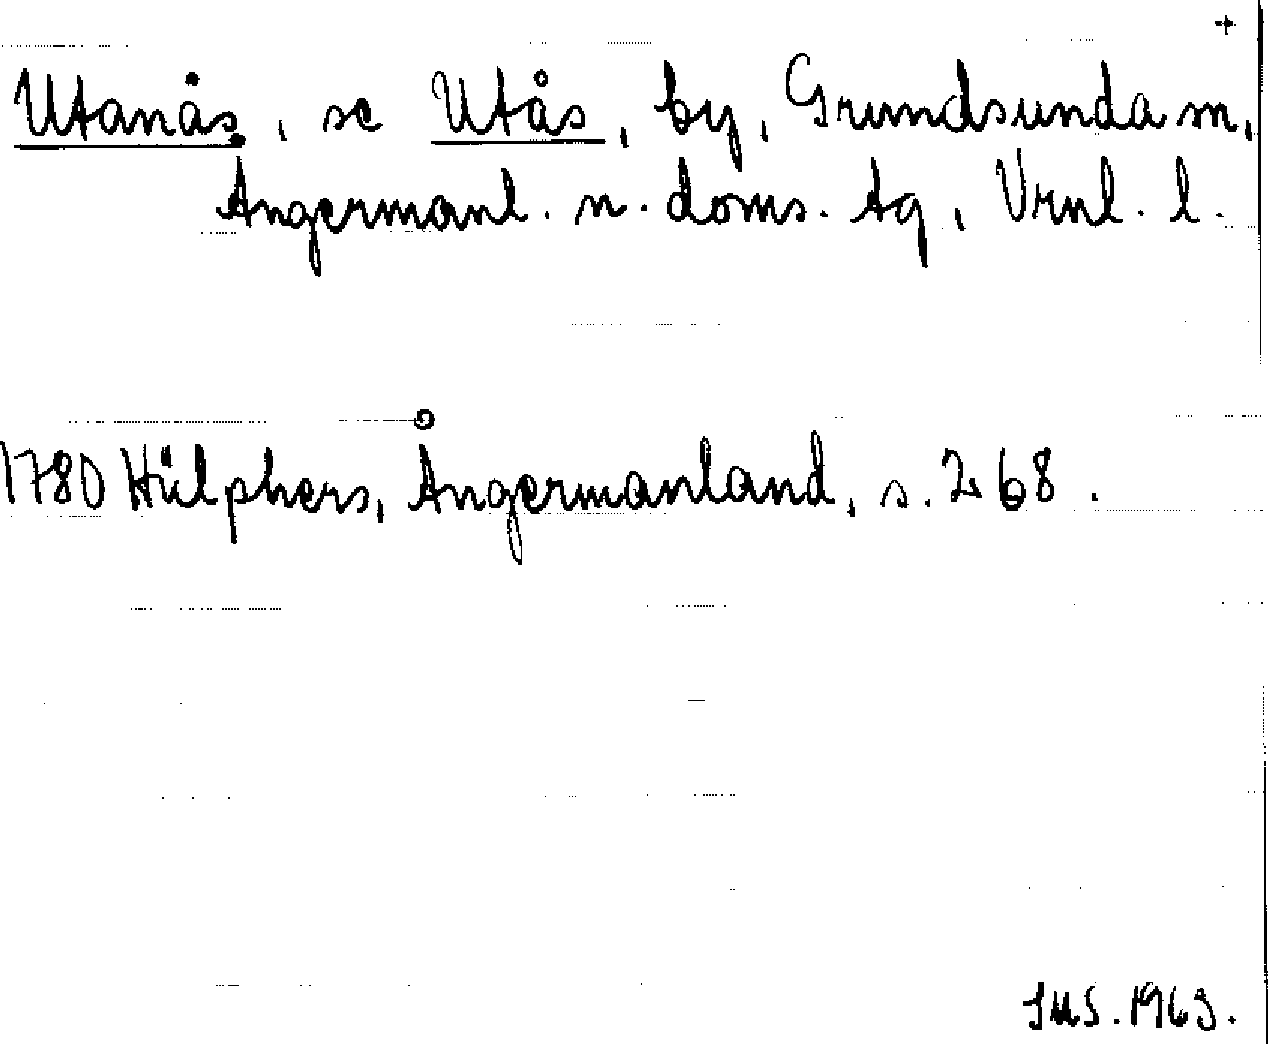 +
Utanås, se Utås, by, Grundsunda sn,
Ångermanl. n. doms. tg, Vrnl. l.
1780 Hülphers, Ångermanland, s. 268.
IMS. 1963.